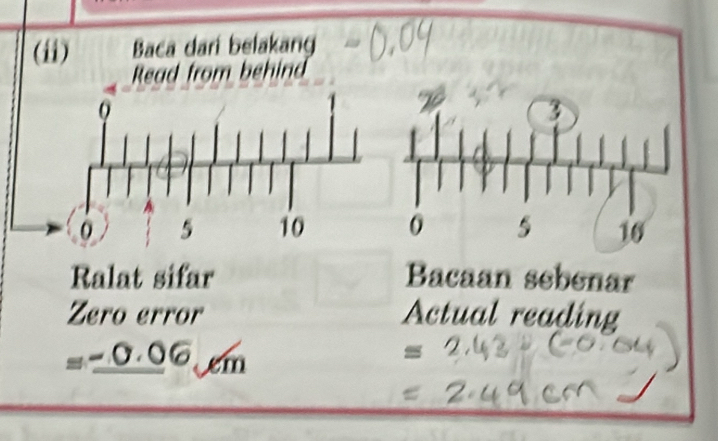 (ii) Baca dari belakang -0.04
Read from behind
0 1 3
0 5 10 0 5 10
Ralat sifar Bacaan sebenar
Zero error Actual reading
= -0.06 cm = 2.43 - (-0.04)
= 2.49 cm